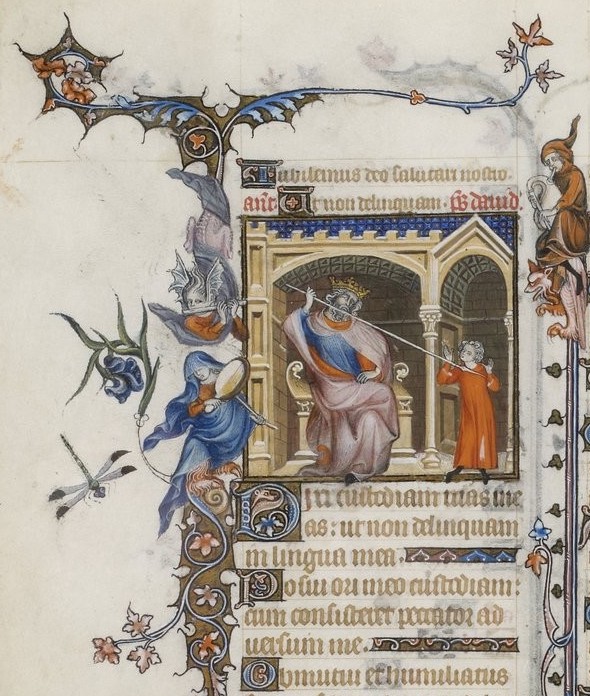 Iubilemus deo salutari nostro.
ant. Ut non delinquam. ps dauid.
Dixi custodiam uias me
as: ut non delinquam
in lingua mea.
Posui ori meo custodiam:
cum consisteret peccator ad
uersum me.
Obmutui et humiliatus